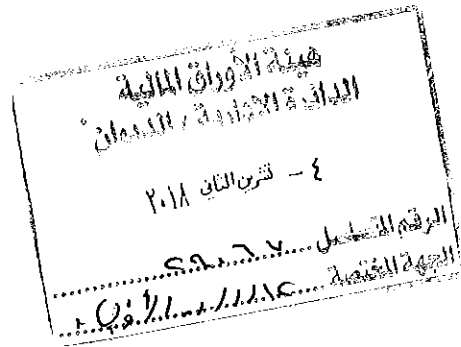 هيئة الأوراق المالية
الدائرة الإدارية / الديوان
٤ - تشرين الثاني ٢٠١٨
الرقم التسلسل
الجهة المختصة